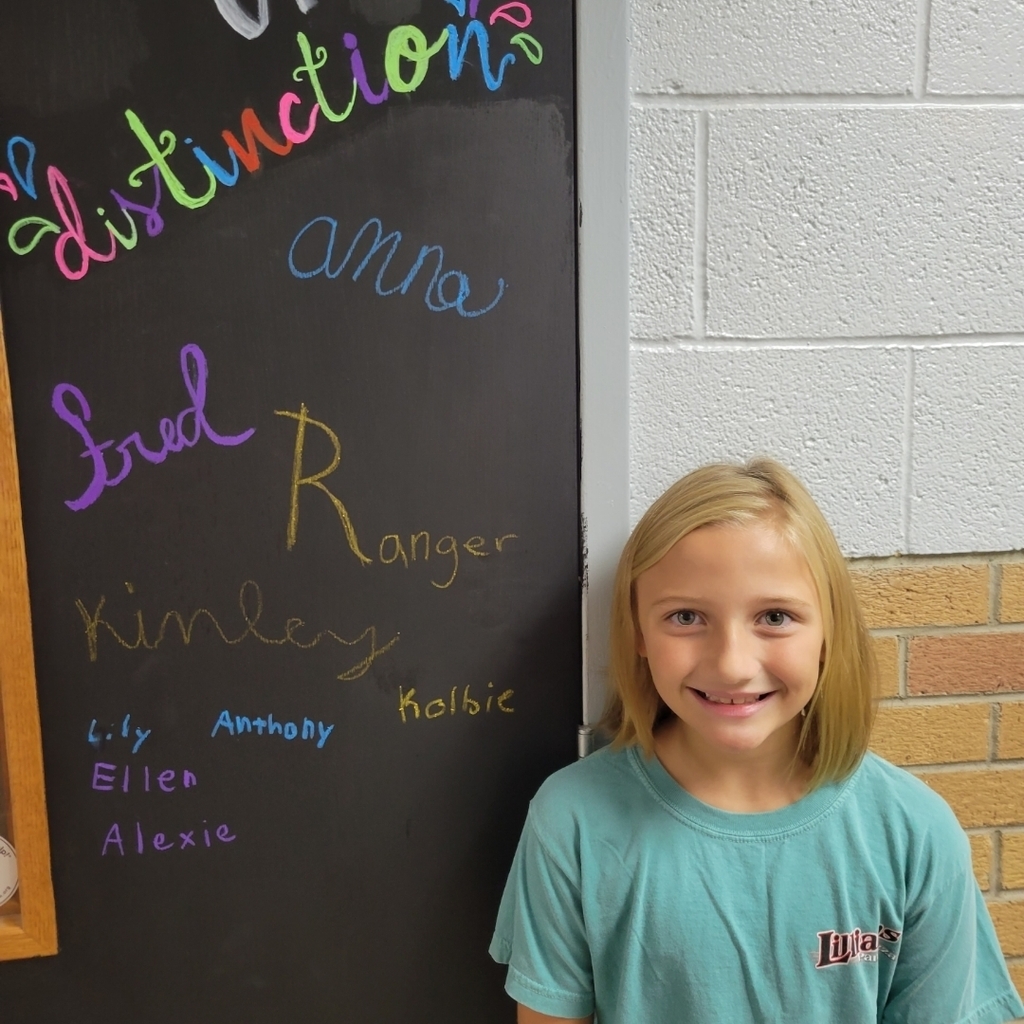 distinction
anna
Fred
Ranger
Kinley
Kolbie
Lily Anthony
Ellen
Alexie
Lillia's